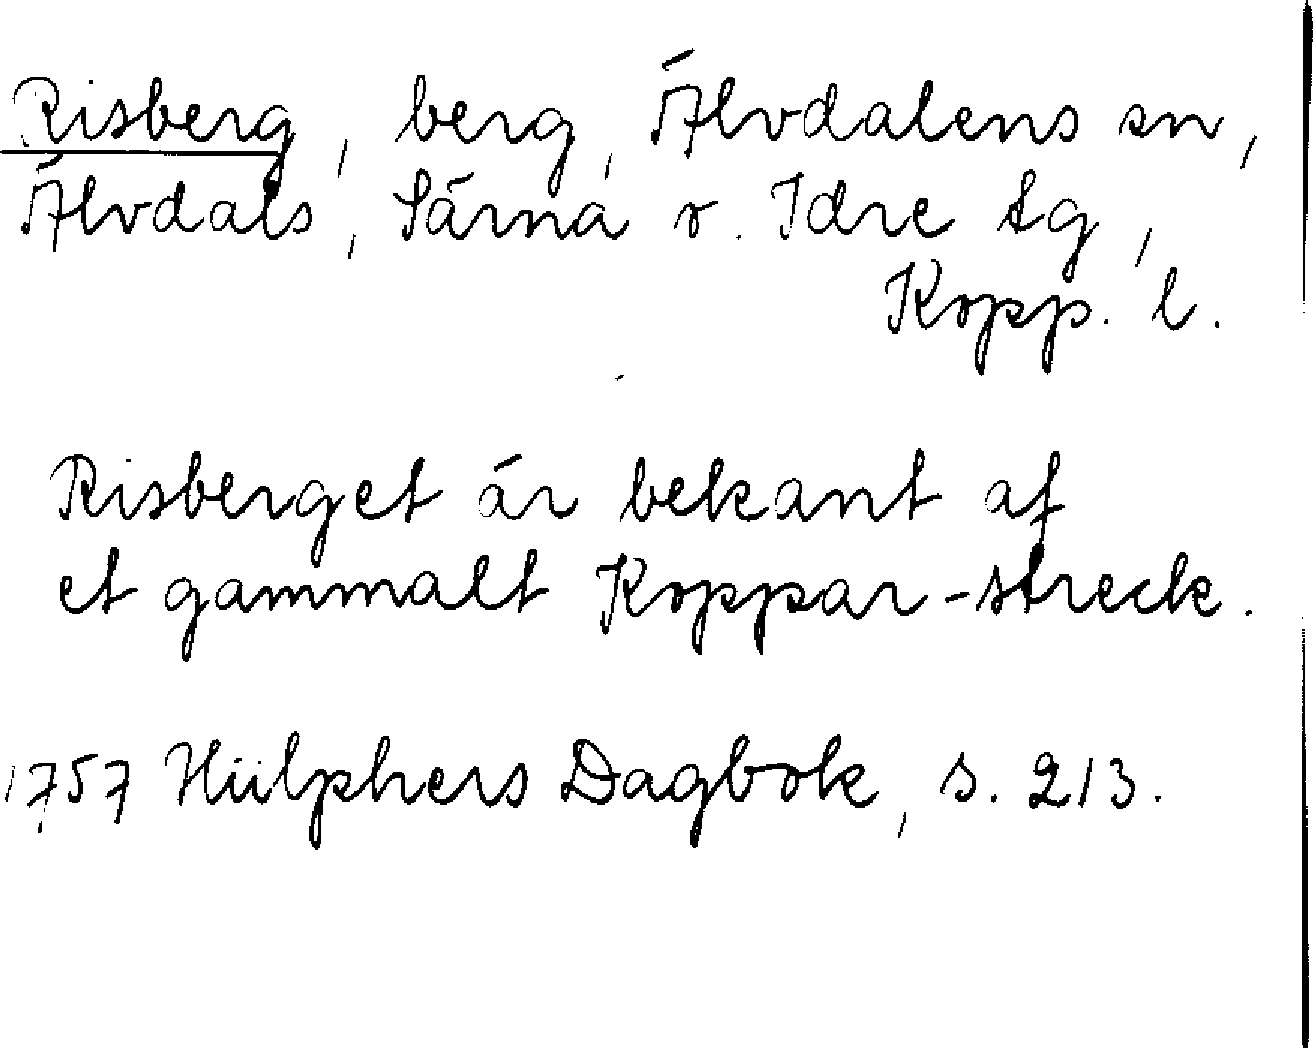 Risberg, berg, Älvdalens sn,
Älvdals, Särna o. Idre tg,
Kopp. l.
Risberget är bekant af
et gammalt Koppar-streck.
1757 Hülphers Dagbok, s. 213.